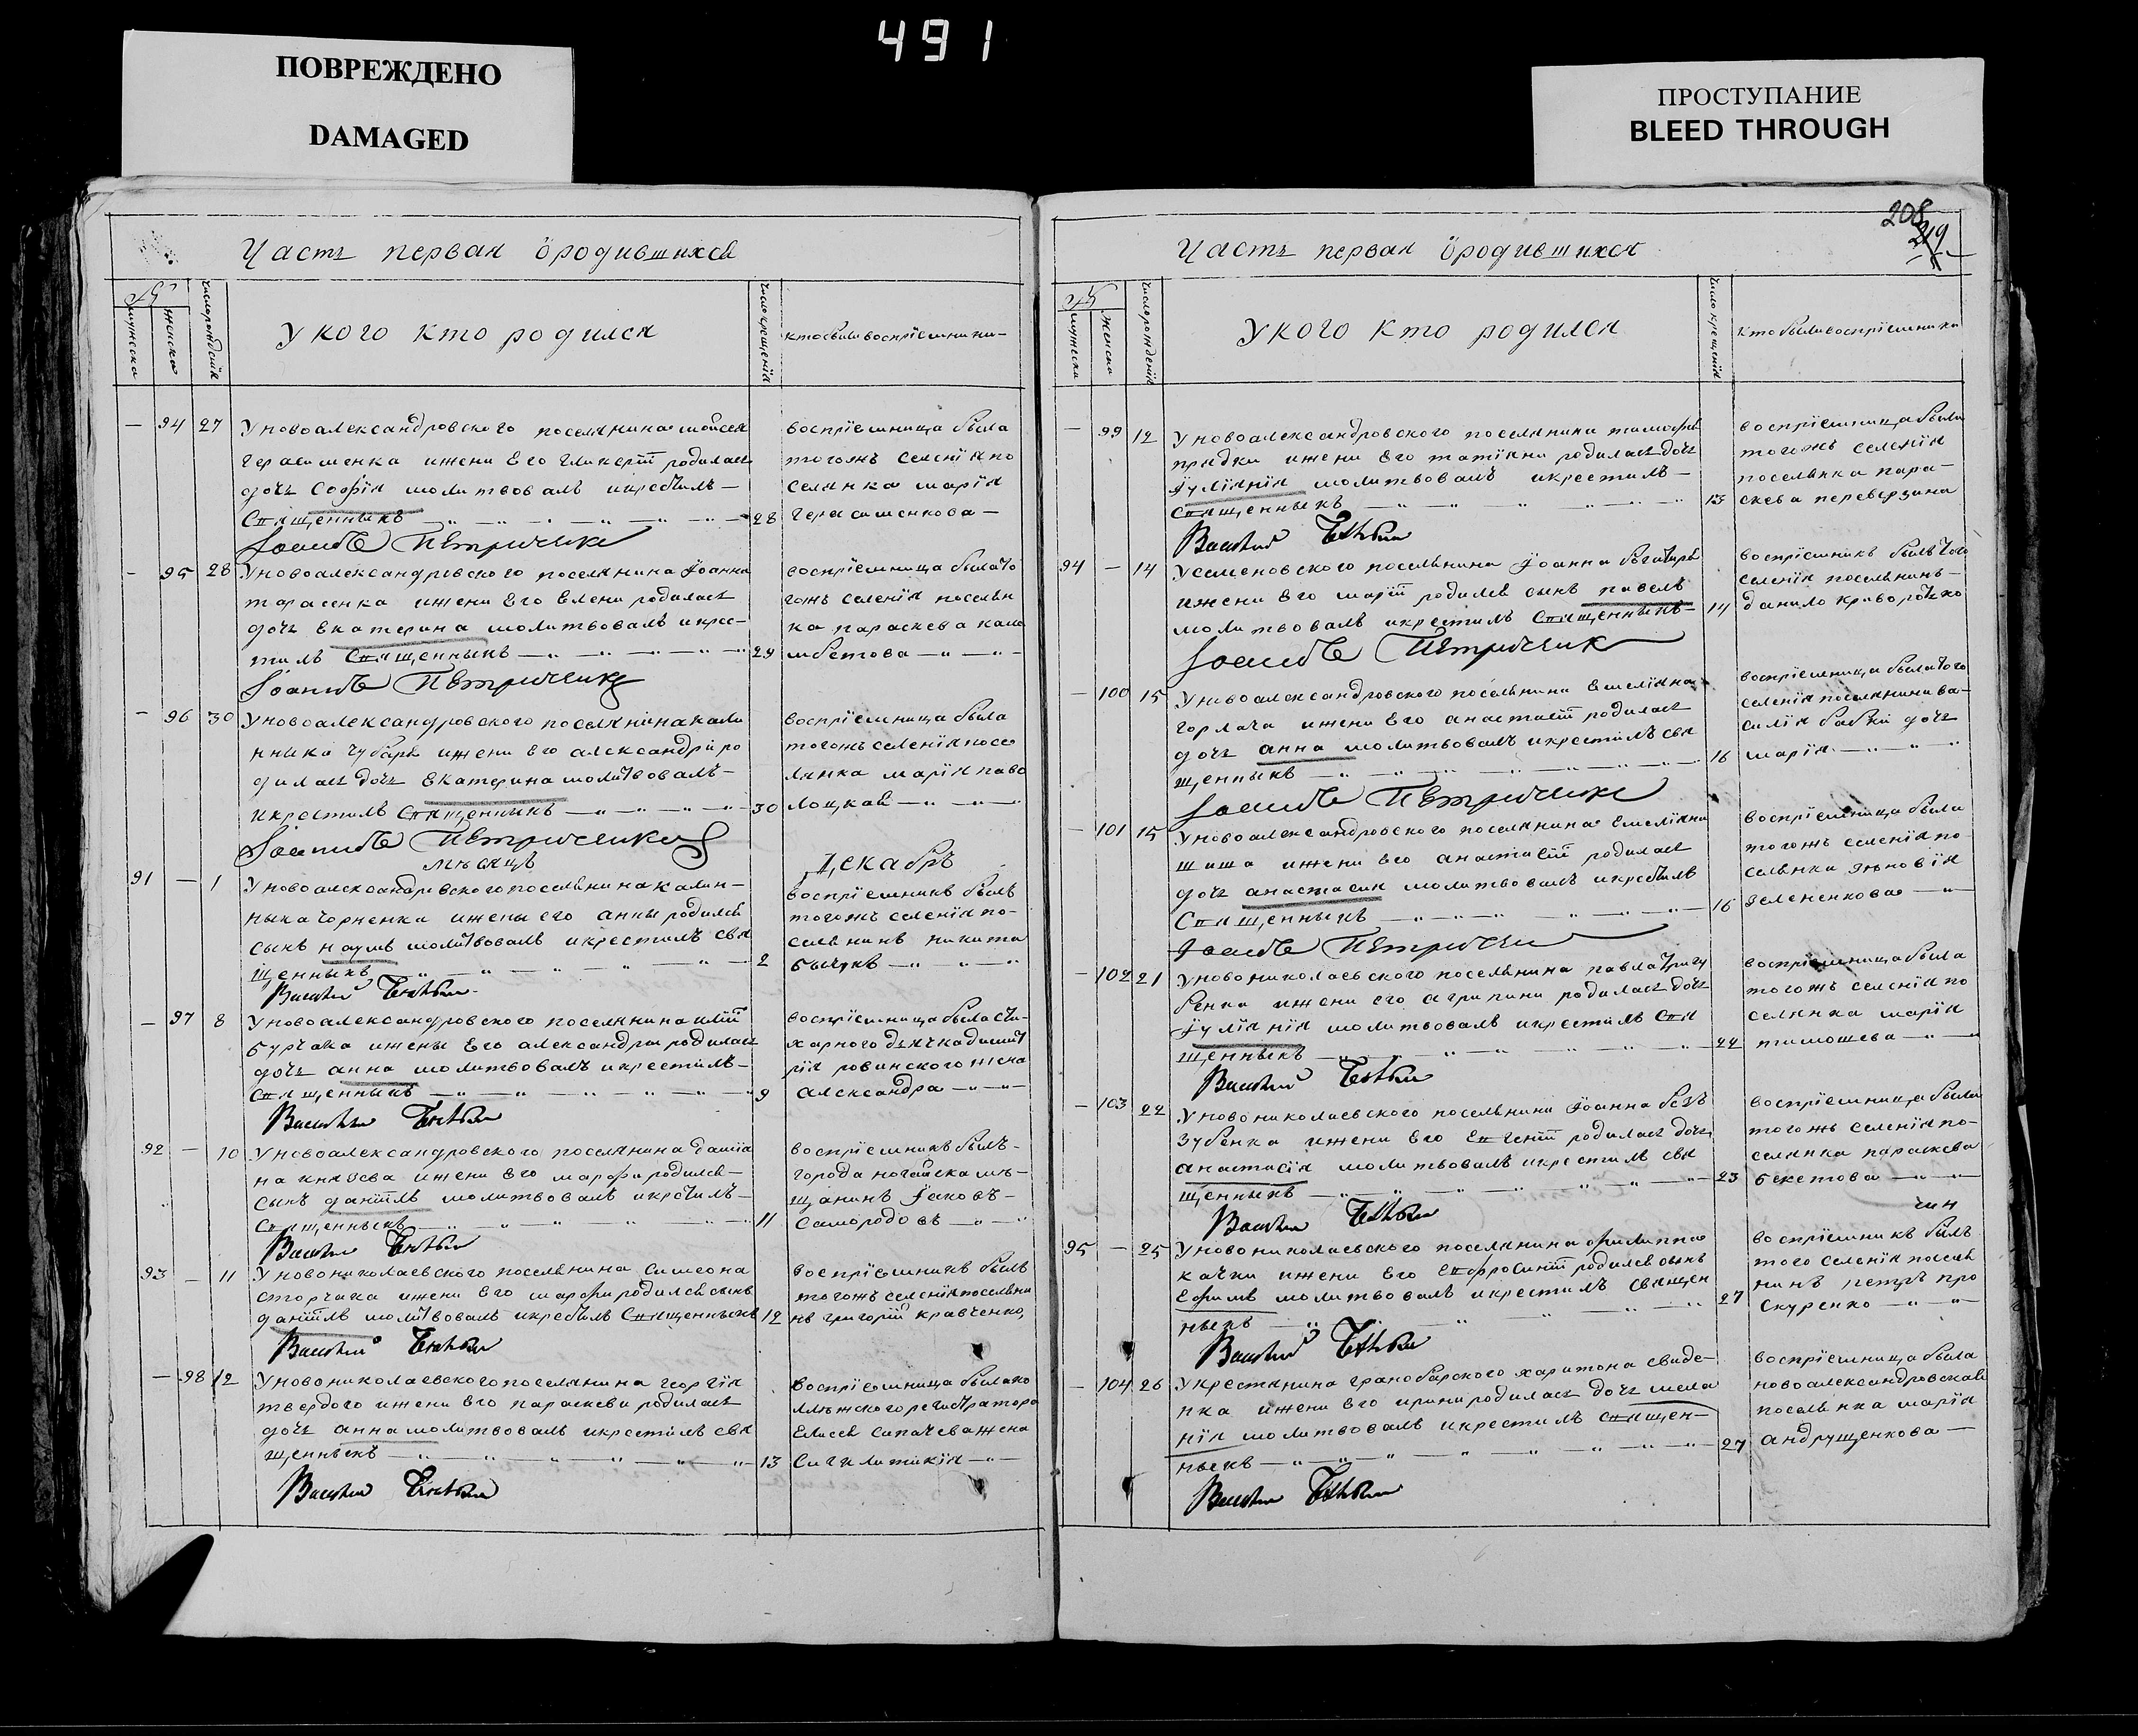 491
ПОВРЕЖДЕНО
DAMAGED
ПРОСТУПАНИЕ
BLEED THROUGH
Часть первая ородившихся
№
мужеска
женска
число рожденія
У кого кто родился
число крещенія
кто были воспріемники
— 94 27 У новоалександровского поселянина моисея
герасименка и жени Его гликеріи родилась
дочь Софія молитвовалъ и крестилъ —
Священныкъ 28
Іоаннъ Петриченко
воспріемница была
тогожъ селенія по
селянка марія
герасименкова —
— 95 28 У новоалександровского поселянина Іоанна
тарасенка и жени Его Елени родилась
дочь Екатерина молитвовалъ и крес-
тилъ Священныкъ 29
Іоаннъ Петриченко
воспріемница была то
гожъ селенія поселян
ка параскева
— 96 30 У новоалександровского поселянина кали
ныка чубаря и жени Его александри ро
дилась дочь Екатерина молитвовалъ —
и крестилъ Священныкъ 30
Іоаннъ Петриченко
воспріемница была
тогожъ селенія посе
лянка марія паво
лоцкая
мѣсяцъ Декабрь
91 — 1 У новоалександровского поселянина калин-
ныка чорненка и жены его анны родился
сынъ наумъ молитвовалъ и крестилъ свя
щенныкъ 2
воспріемникъ былъ
тогожъ селенія по-
селянинъ никита
бычукъ
— 97 8 У новоалександровского поселянина иліи
бурчака и жены Его александри родилась
дочь анна молитвовалъ и крестилъ —
Священныкъ 9
воспріемница была
рія ровинского жена
александра
92 — 10 У новоалександровского поселянина даміа
на князева и жени Его марфи родился —
сынъ даніилъ молитвовалъ и крестилъ —
Священныкъ 11
воспріемникъ былъ —
города ногайска мѣ-
щанинъ Іековъ —
Самородовъ
93 — 11 У новониколаевского поселянина симеона
сторчака и жени Его марфи родился сынъ
даніилъ молитвовалъ и крестилъ Священныкъ 12
воспріемникъ былъ
тогожъ селенія поселяни
нъ григорій кравченко,
— 98 12 У новониколаевского поселянина георгія
твердого и жени Его параскеви родилась
дочь анна молитвовалъ и крестилъ свя
щенныкъ 13
воспріемница была ко
ллежского регистратора
Елисея жена
208
219
Часть первая ородившихся
№
мужеска
женска
число рожденія
У кого кто родился
число крещенія
кто были воспріемники
— 99 12 У новоалександровского поселянина тимофея
прядки и жени Его татіяни родилась дочь
Іуліянія молитвовалъ и крестилъ —
Священныкъ 13
воспріемница была
тогожъ селенія
поселянка пара-
скева переверзина
94 — 14 У семеновского поселянина Іоанна богатыря
и жени Его маріи родился сынъ павелъ
молитвовалъ и крестилъ Священныкъ — 14
Іоаннъ Петриченко
воспріемникъ былъ того
селенія поселянинъ —
данило криворотько
— 100 15 У новоалександровского поселянина Емеліяна
горлача и жени Его анастасіи родилась
дочь анна молитвовалъ и крестилъ свя
щенныкъ 16
Іоаннъ Петриченко
воспріемница была того
селенія поселянина ва-
силія бабки дочь
марія
— 101 15 У новоалександровского поселянина Емеліяна
шиша и жени Его анастасіи родилась
дочь анастасия молитвовалъ и крестилъ
Священныкъ 16
Іоаннъ Петриченко
воспріемница была
тогожъ селенія по-
селянка зѣновія
зелененкова
— 102 21 У новониколаевского поселянина павла григу
ренка и жени его агрипини родилась дочь
Іуліянія молитвовалъ и крестилъ Свя
щенныкъ 22
воспріемница была
тогожъ селенія по
селянка марія
тимошева
— 103 22 У новониколаевского поселянина Іоанна безъ
зубенка и жени Его Евгеніи родилась дочь
анастасія молитвовалъ и крестилъ свя
щенныкъ 23
воспріемница была
тогожъ селенія по-
селянка параскева
бекетова
95 — 25 У новониколаевского поселянина филиппа
качки и жени Его Евфросиніи родился сынъ
Ефимъ молитвовалъ и крестилъ священ
ныкъ 27
воспріемникъ былъ
того селенія поселя
нинъ петръ про
скуренко
— 104 26 У крестянина гранобарского харитона свиде-
нка и жени Его ирини родилась дочь мела
нія молитвовалъ и крестилъ священ-
ныкъ 27
воспріемница была
новоалександровская
поселянка марія
андрущенкова —